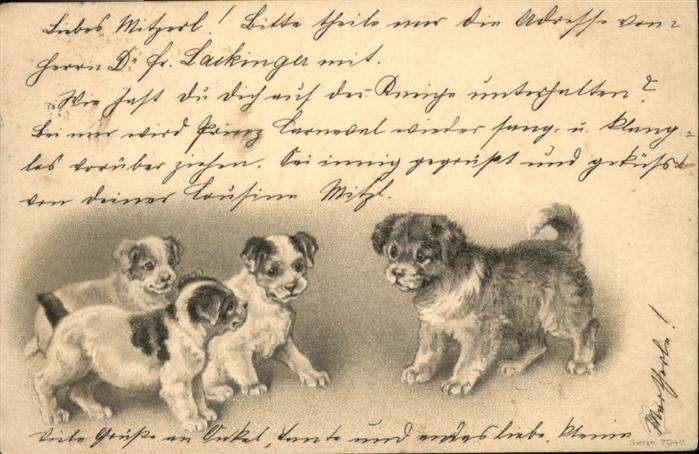 Liebes Mitzerl! Bitte theile mir die Adresse von
Herrn Dr. Fr. Lackinger mit.
Wie hast du dich auf der Kneipe unterhalten?
Bei mir wird Prinz Carneval wieder sang- u. klang-
los vorüber ziehen. Sei innig gegrüßt und geküßt
von deiner Cousine Mitzl.
Viele Grüße an Onkel, Tante und das liebe, kleine
Serie 7047